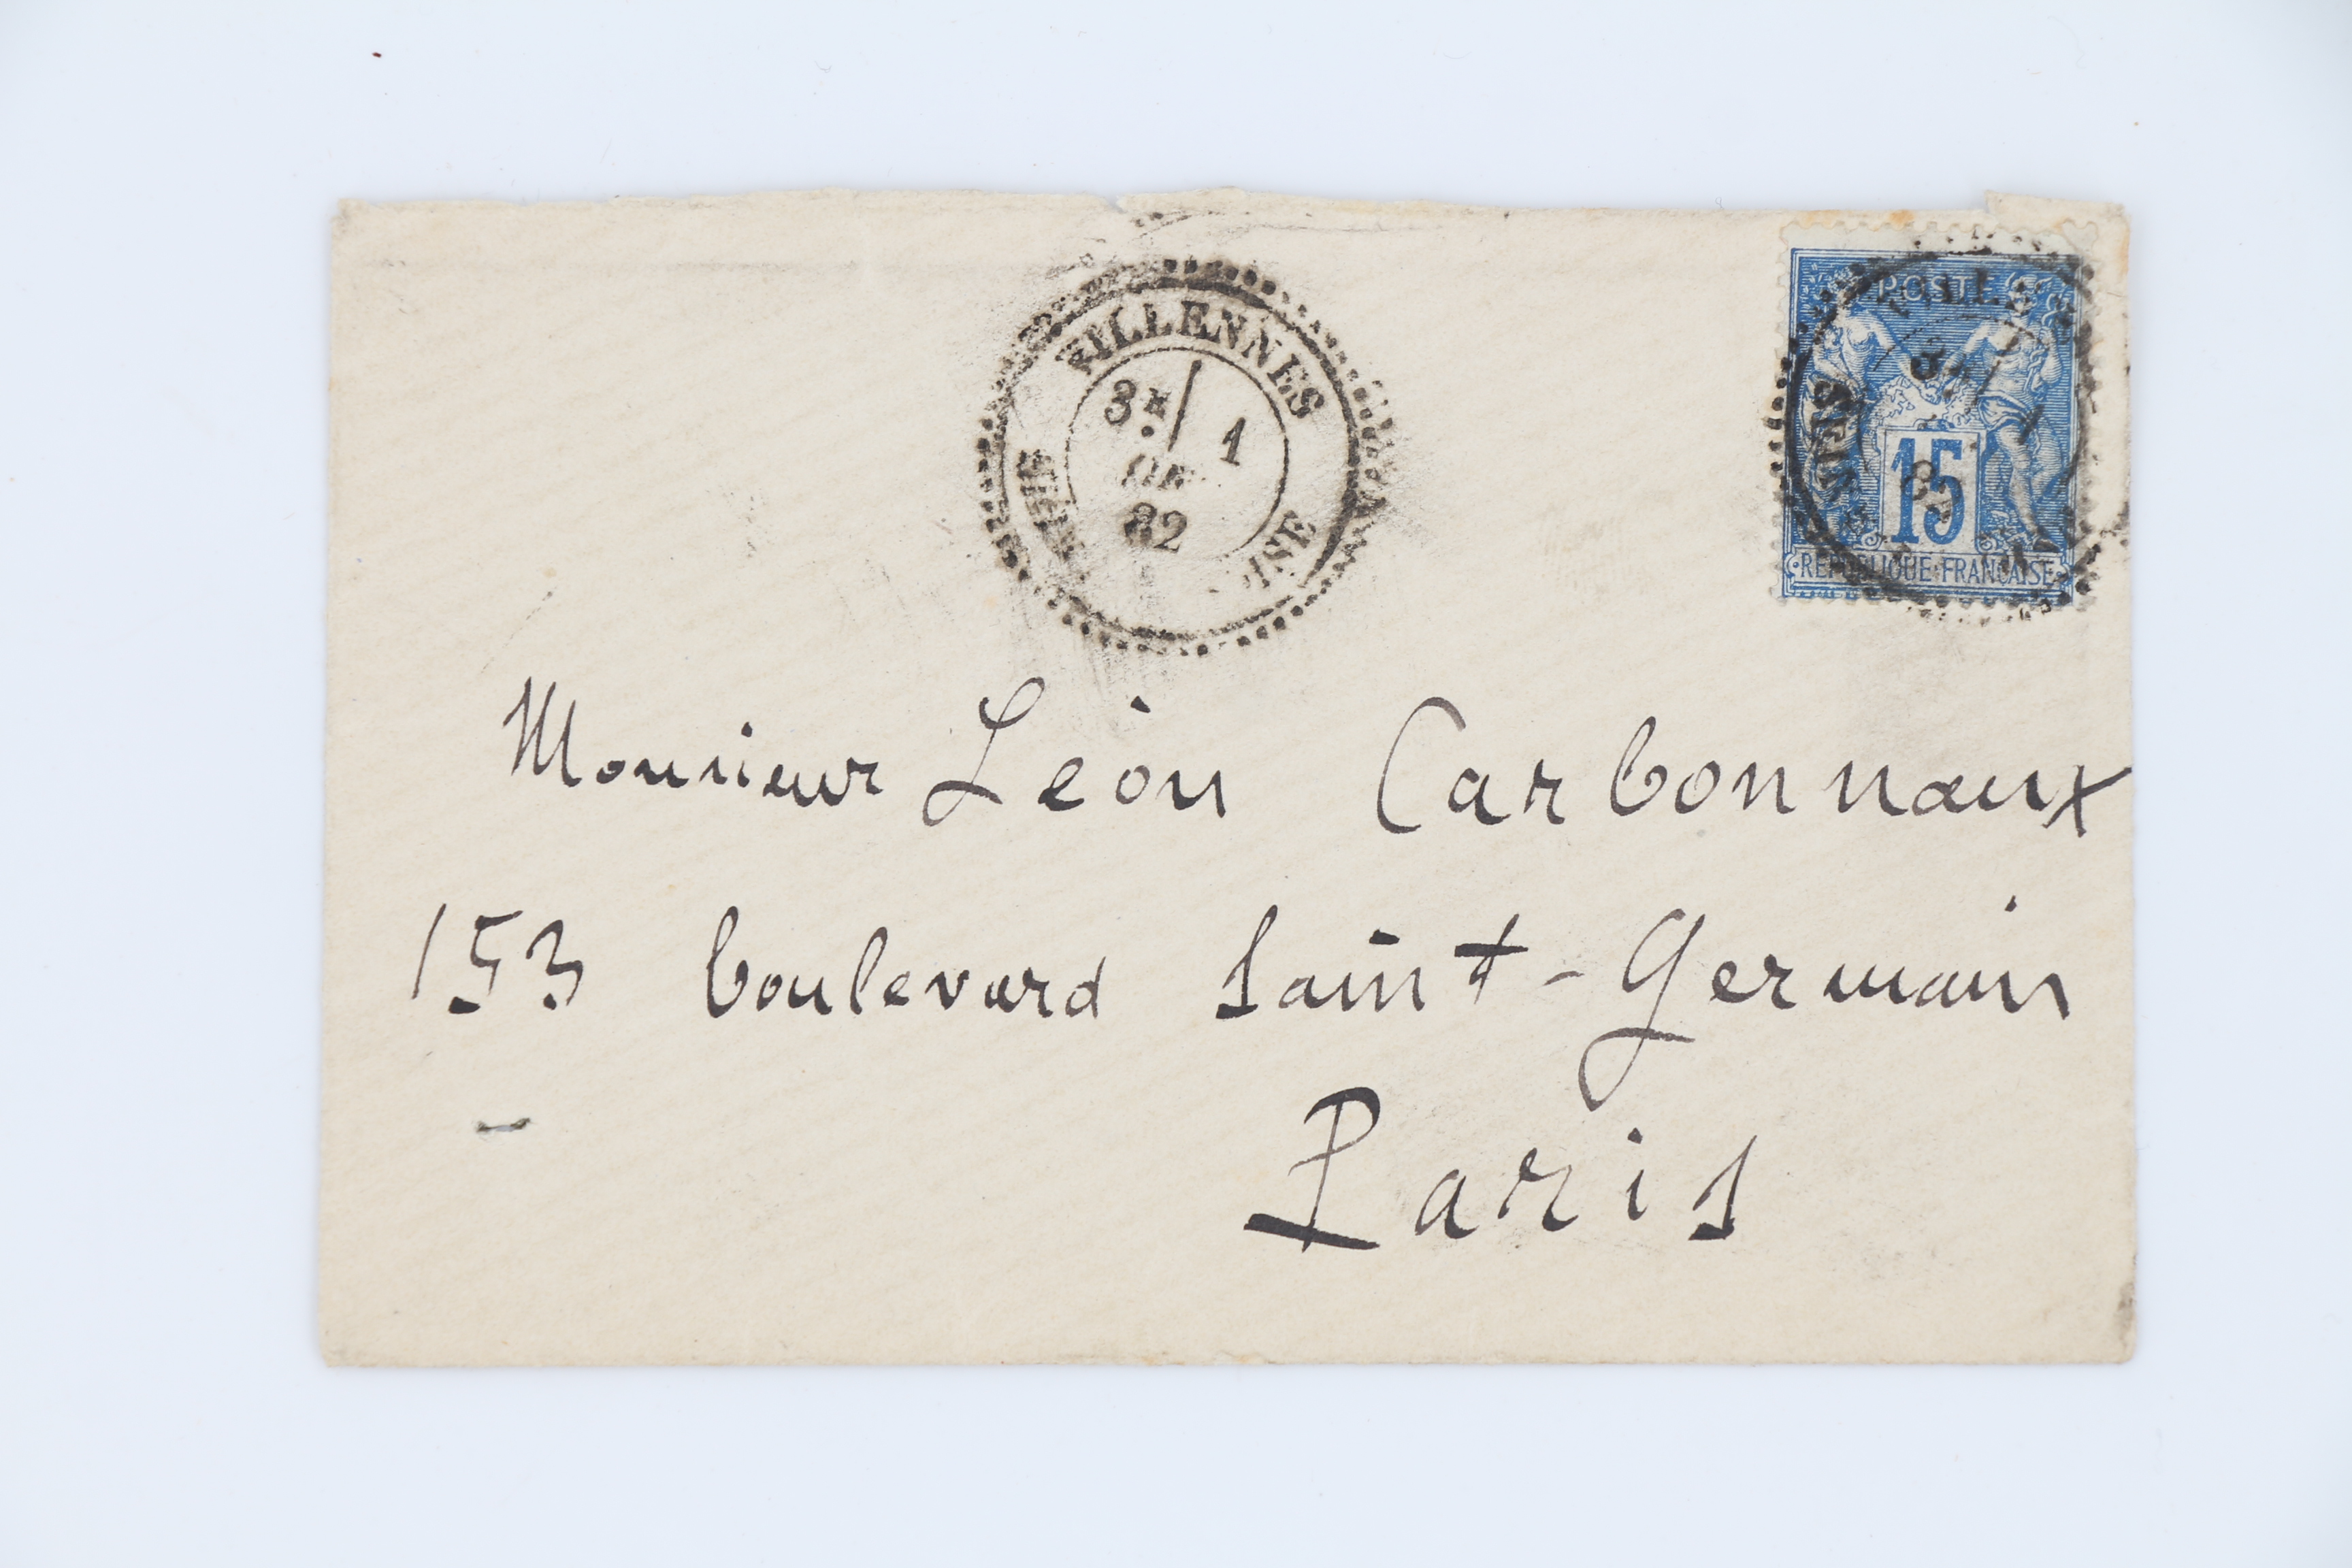 VILLENNES
3ᴱ 1
82
POSTE
15
REPUBLIQUE FRANÇAISE
Monsieur Léon Carbonnaux
153 boulevard Saint-Germain
Paris